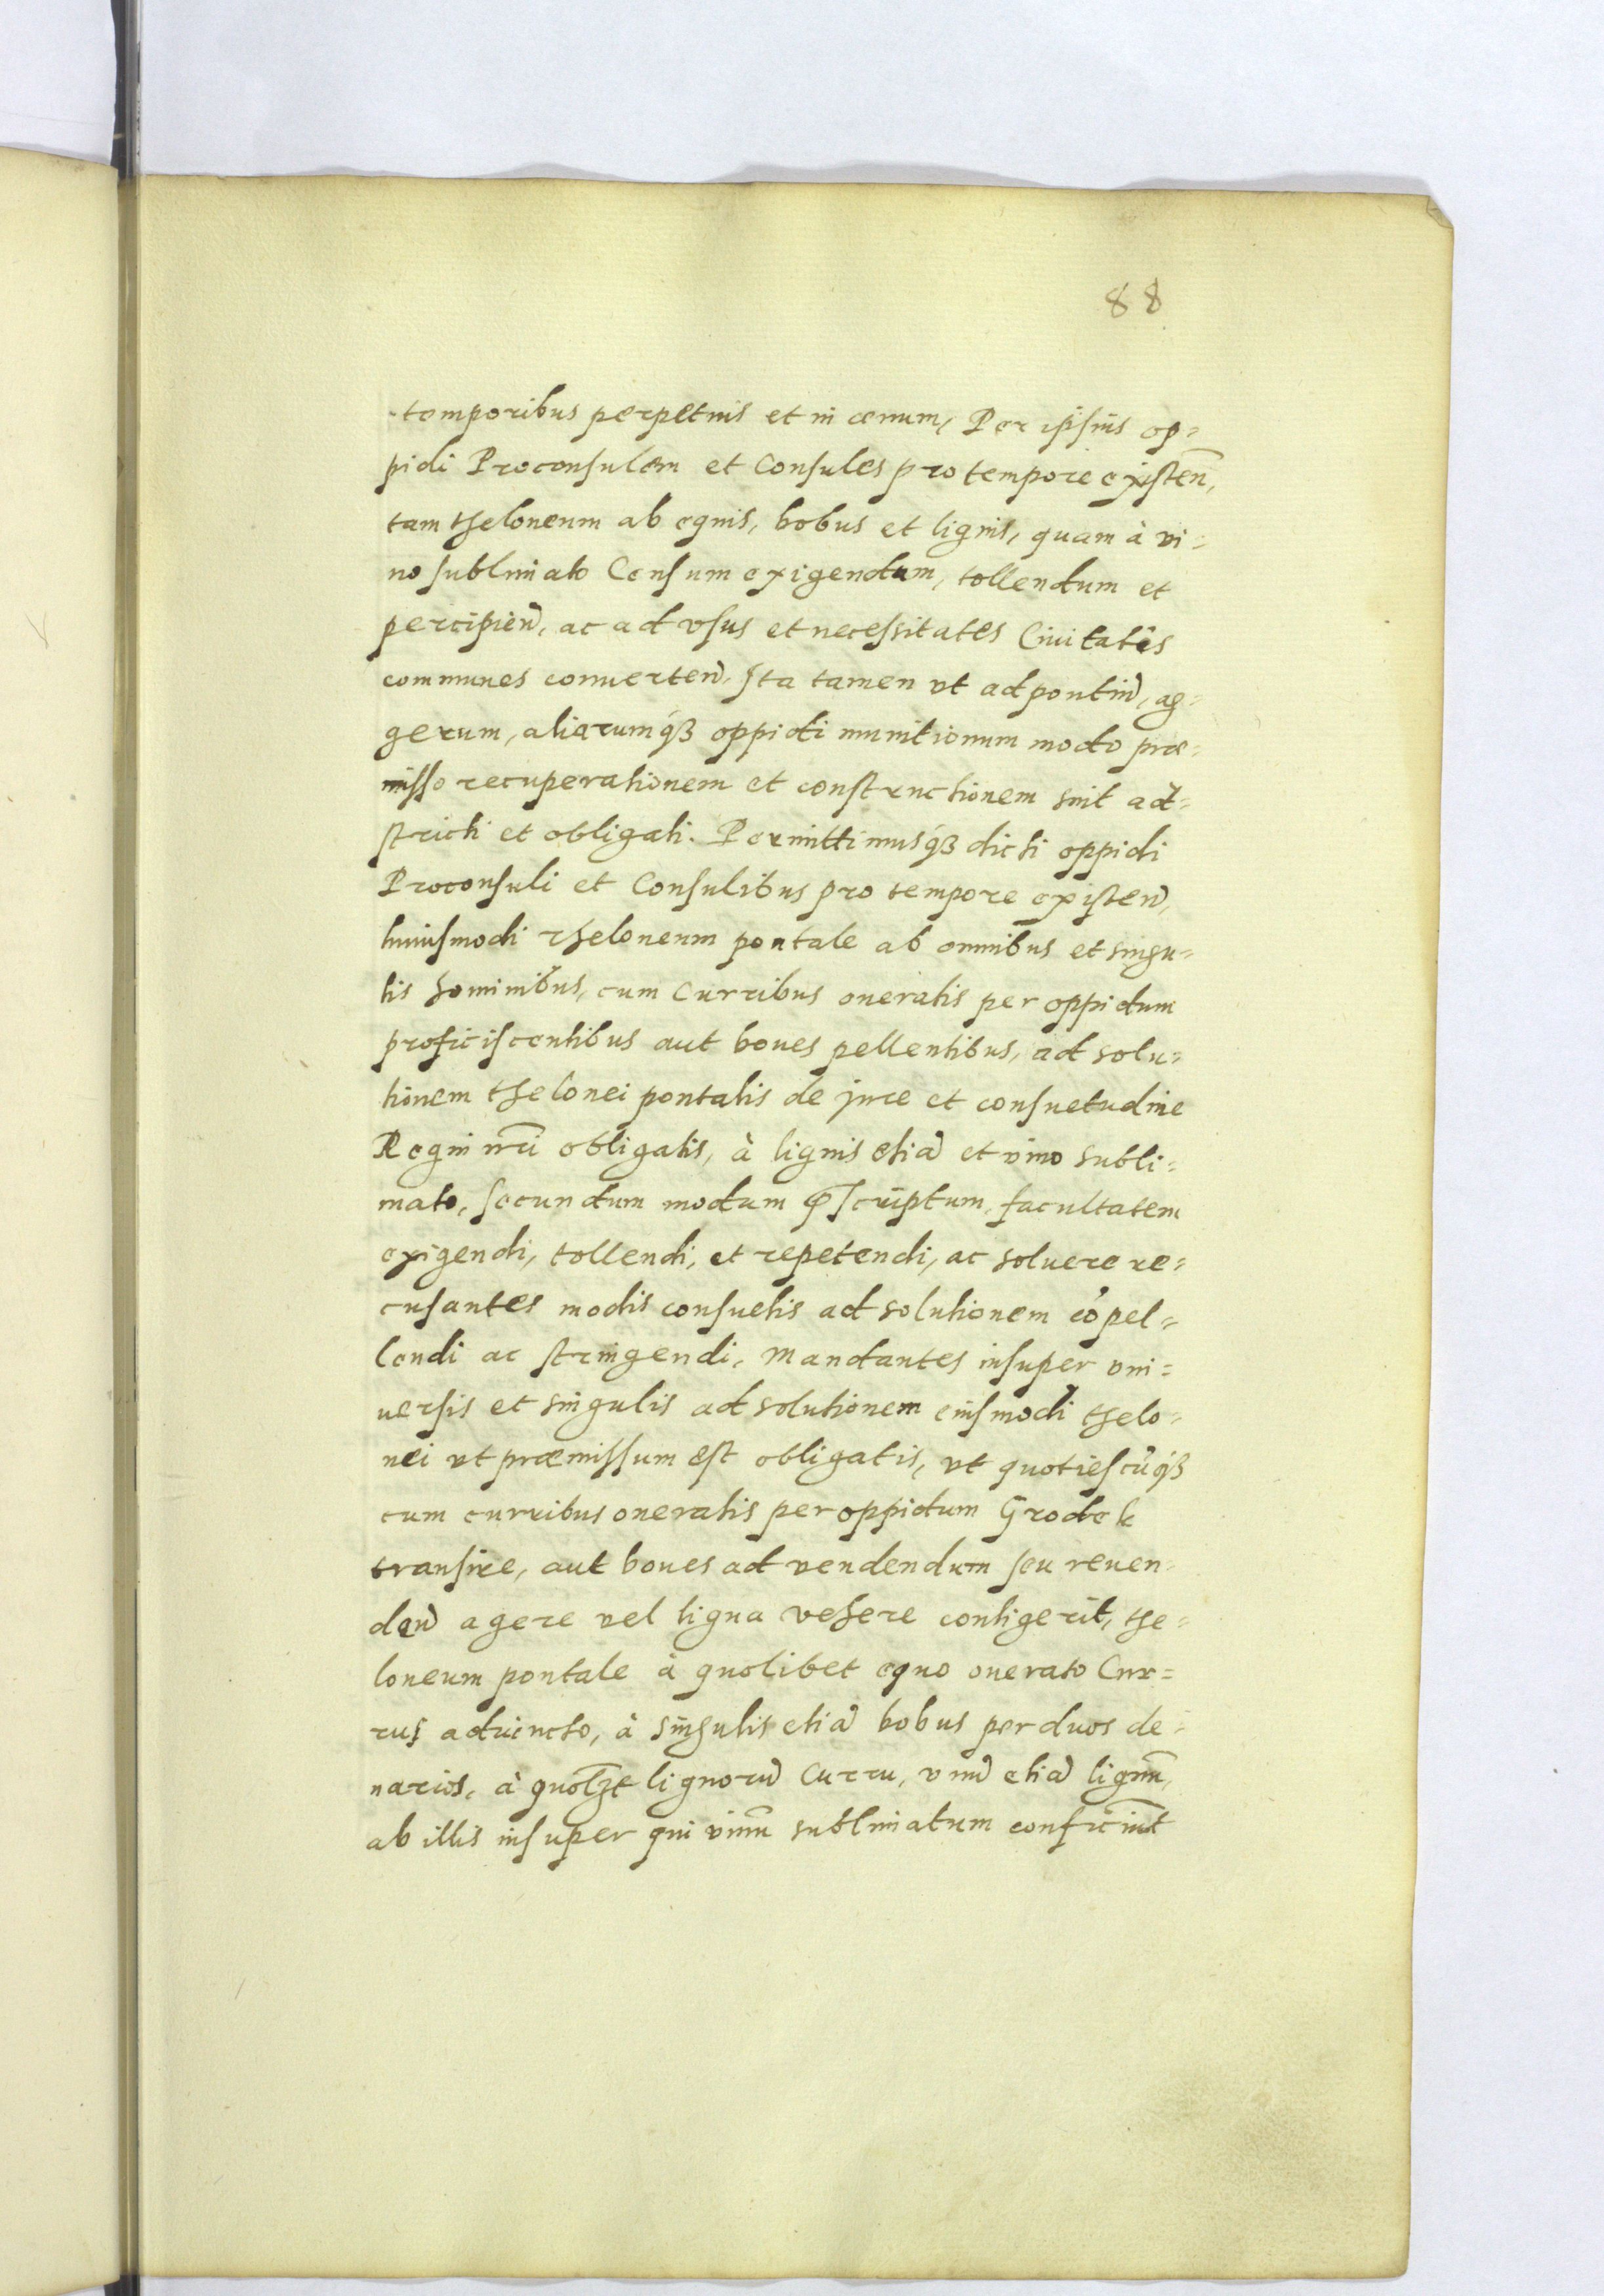 88
temporibus perpetuis et in æuum, Per ipsius op=
pidi Proconsulem et Consules pro tempore existeñ,
tam theloneum ab equis, bobus et lignis, quam à vi=
no sublimato Censum exigendum, tollendum et
percipień, ac ad vsus et necessitates Ciuitatis
communes conuerteń, Ita tamen vt ad pontiũ, ag=
gerum, aliarumqꝫ oppidi munitionum modo præ=
misso recuperationem et constructionem sint ad=
stricti et obligati. Permittimusqꝫ dicti oppidi
Proconsuli et Consulibus pro tempore existeń,
huiusmodi theloneum pontale ab omnibus et singu=
lis hominibus, cum Curribus oneratis per oppidum
proficiscentibus aut boues pellentibus, ad solu=
tionem thelonei pontalis de jure et consuetudine
Regni nr̃i obligatis, à lignis etiã et vino subli=
mato, secundum modum p̃scriptum, facultatem
exigendi, tollendi, et repetendi, ac soluere re=
cusantes modis consuetis ad solutionem cõpel=
lendi ac stringendi. Mandantes insuper vni=
uersis et singulis ad solutionem eiusmodi thelo=
nei vt præmissum est obligatis, vt quotiescũqꝫ
cum curribus oneratis per oppidum Grodek
transire, aut boues ad vendendum seu reuen=
deń agere vel ligna vehere contigerit, the=
loneum pontale à quolibet equo onerato Cur=
rui aduincto, à singulis etiã bobus per duos de=
narios, à quolꝫt lignorũ Curru, vnũ etiã lignũ,
ab illis insuper qui vinũ sublimatum conficiũt